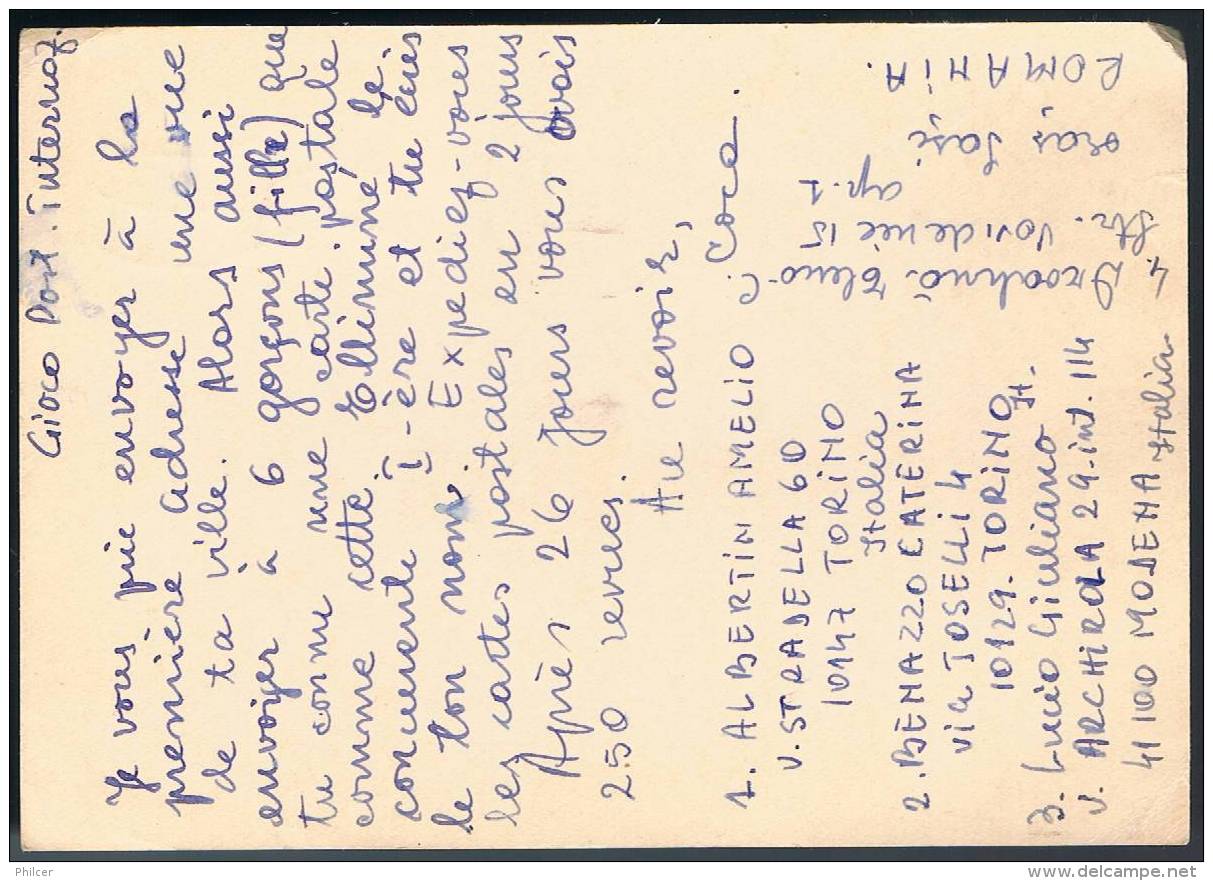 Gioco Post. Internaz.
Je vous prie envoyer à la
première adresse une vue
de ta ville. Alors aussi
envoyer à 6 garçons (fille) que
tu connu une carte postale
comme cette. Elliminé le
concurente I-ère et tu écris
le ton nom. Expediez-vous
les cartes postales en 2 jours
Après 26 jours vous avais
250 revues.
Au revoir,
C. Coca.
1. ALBERTIN AMELIO
V. STRADELLA 60
10147 TORINO
Italia
2. BENAZZO CATERINA
via TOSELLI 4
10129. TORINO
It.
3. Lucio Giuliano
v. ARCHIROLA 29 int. 114
41100 MODENA Italia
4. Elena
Str. 15
ap. 1
oras Iași
ROMANIA.
Philcer
delcampe.net